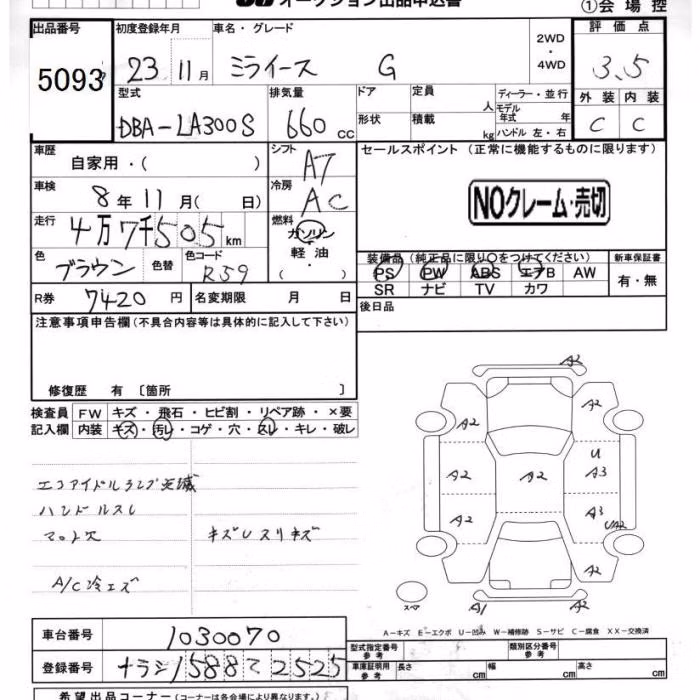 オークション出品申込書
①会場控
出品番号 5093
初度登録年月 23年 11月
車名・グレード ミライース G
2WD・4WD
評価点 3.5
型式 DBA-LA300S
排気量 660 cc
ドア 形状
定員 人
積載 kg
ディーラー・並行
モデル年式 年
ハンドル 左・右
外装 C
内装 C
車歴 自家用・( )
シフト AT
セールスポイント (正常に機能するものに限ります)
車検 8年11月( 日)
冷房 AC
NOクレーム・売切
走行 4万7千505km
燃料 ガソリン・軽油・( )
色 ブラウン 色替
色コード R59
装備品(純正品に限り○をつけてください)
新車保証書
PS PW ABS エアB AW
有・無
SR ナビ TV カワ
R券 7420円
名変期限 月 日
後日品
注意事項申告欄(不具合内容等は具体的に記入して下さい)
修復歴 有 〔箇所 〕
検査員記入欄
FW キズ・飛石・ヒビ割・リペア跡・×要
内装 キズ・汚レ・コゲ・穴・スレ・キレ・破レ
エコアイドルランプ点滅
ハンドルスレ
マット欠 キズUスリキズ
A/C冷エズ
A2
A2
A2
U
A2 A2 A3
A2 A3 UA2
スペア A1 A2
A-キズ E-エクボ U-凹み W-補修跡 S-サビ C-腐食 XX-交換済
車台番号 1030070
登録番号 ナラシ 1588 て 2525
型式指定番号 参考
類別区分番号 参考
車庫証明用 参考 長さ cm 幅 cm 高さ cm
希望出品コーナー(コーナーは各会場により異なります。)